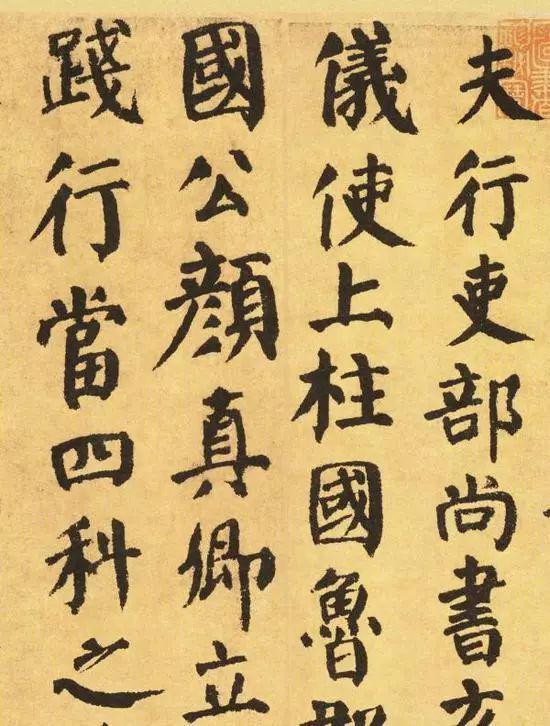 夫行吏部尚書充
儀使上柱國魯郡
國公顏真卿立
踐行當四科之